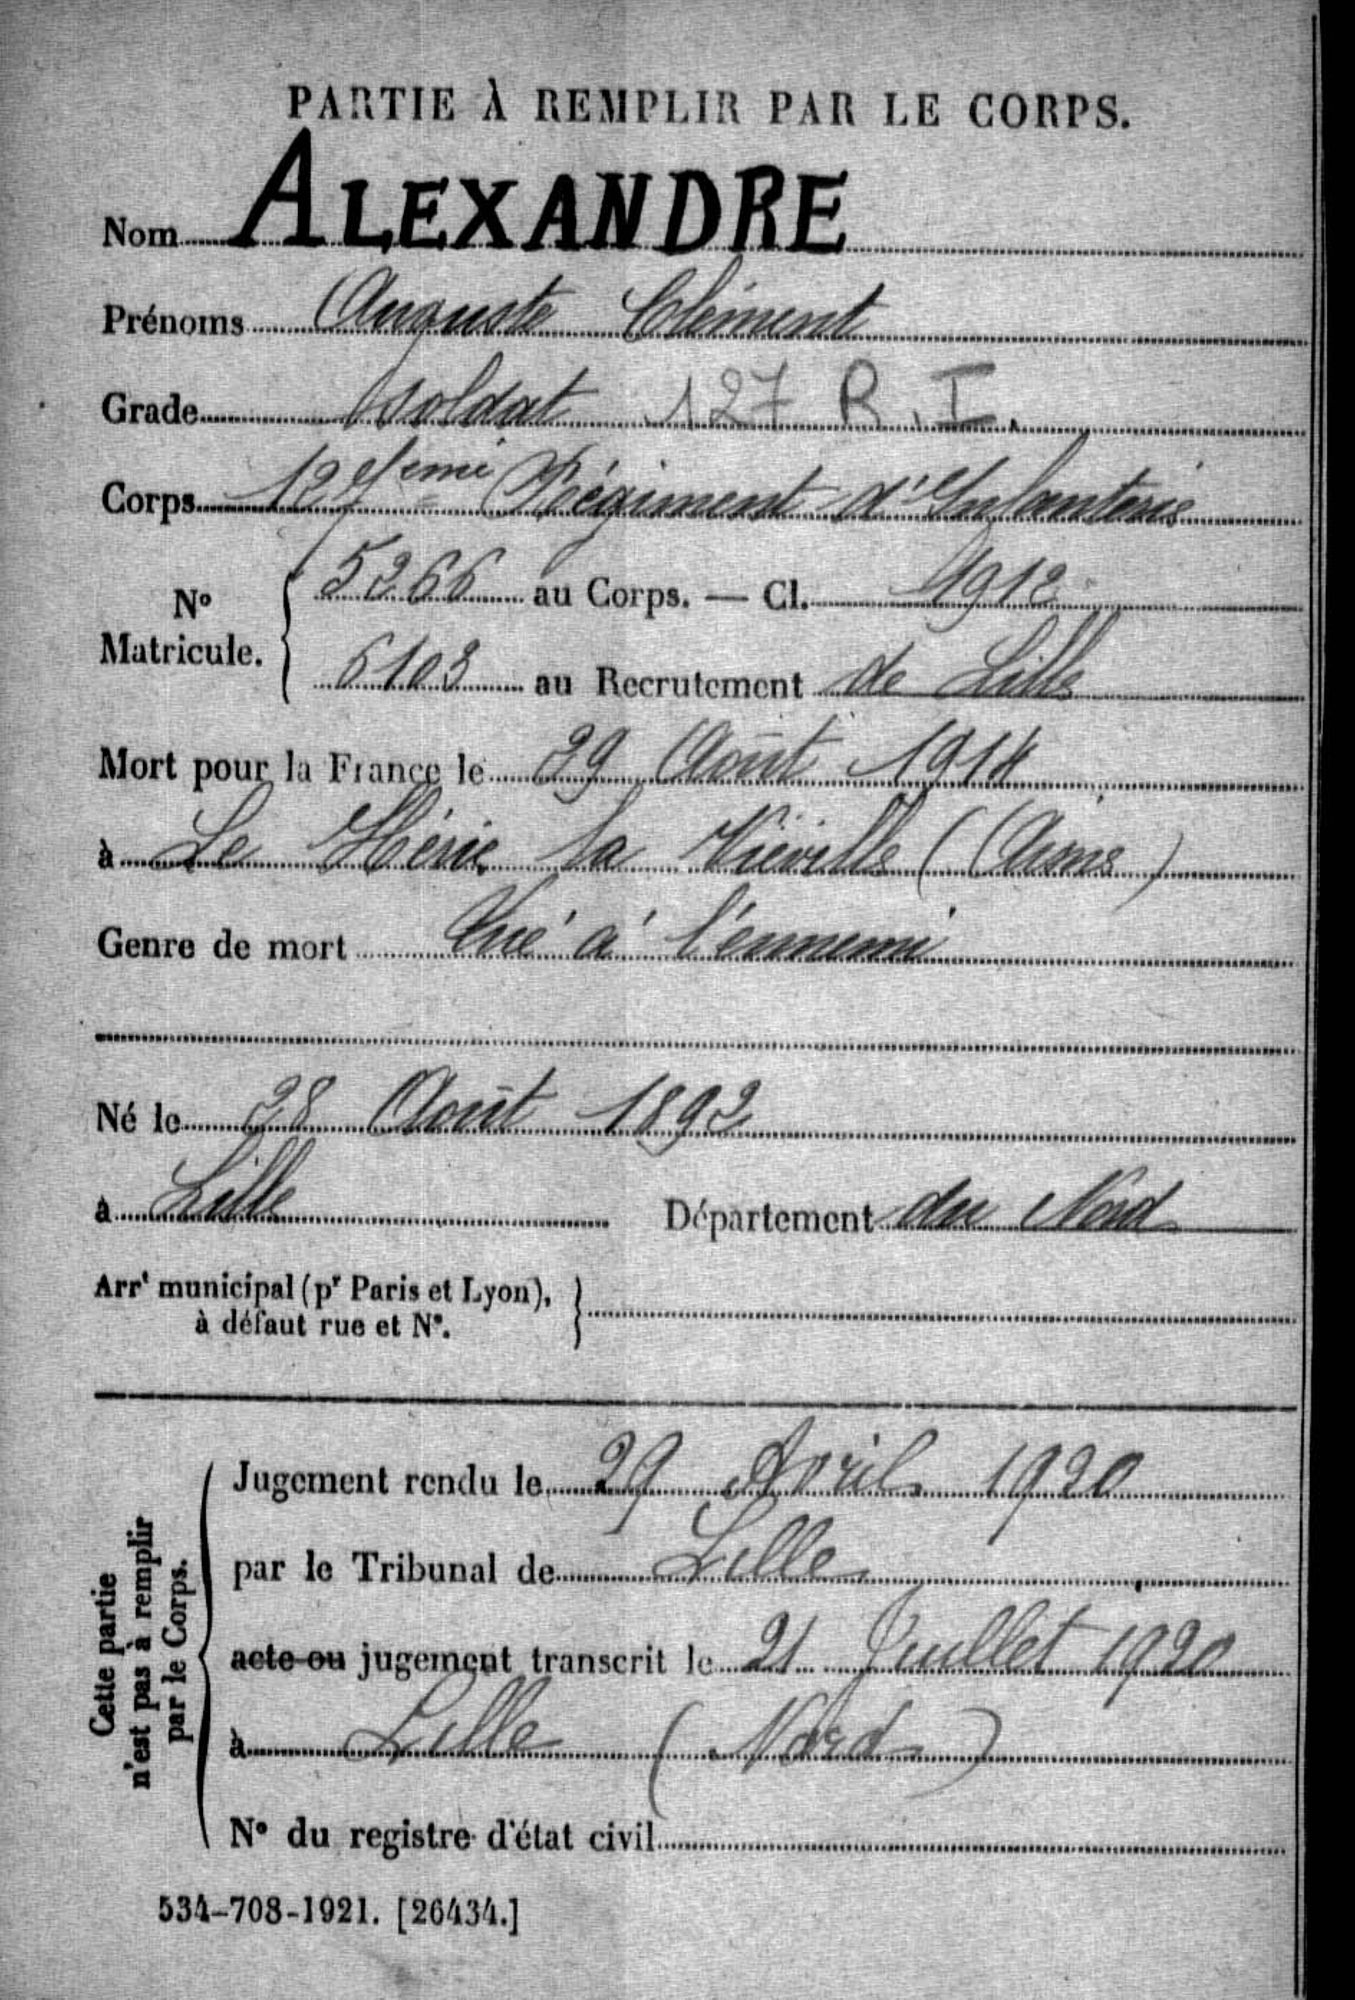 PARTIE À REMPLIR PAR LE CORPS.
Nom ALEXANDRE
Prénoms Auguste Clément
Grade Soldat 127 R.I.
Corps 127ème Régiment d'Infanterie
N° Matricule. { 5266 au Corps. — Cl. 1912
6103 au Recrutement de Lille
Mort pour la France le 29 Août 1914
à Le Hérie la Viéville (Aisne)
Genre de mort Tué à l'ennemi
Né le 28 Août 1892
à Lille Département du Nord
Arrt municipal (pr Paris et Lyon), }
à défaut rue et N°.
Cette partie
n'est pas à remplir
par le Corps.
Jugement rendu le 29 Avril 1920
par le Tribunal de Lille
acte ou jugement transcrit le 21 Juillet 1920
à Lille (Nord)
N° du registre d'état civil
534-708-1921. [26434.]